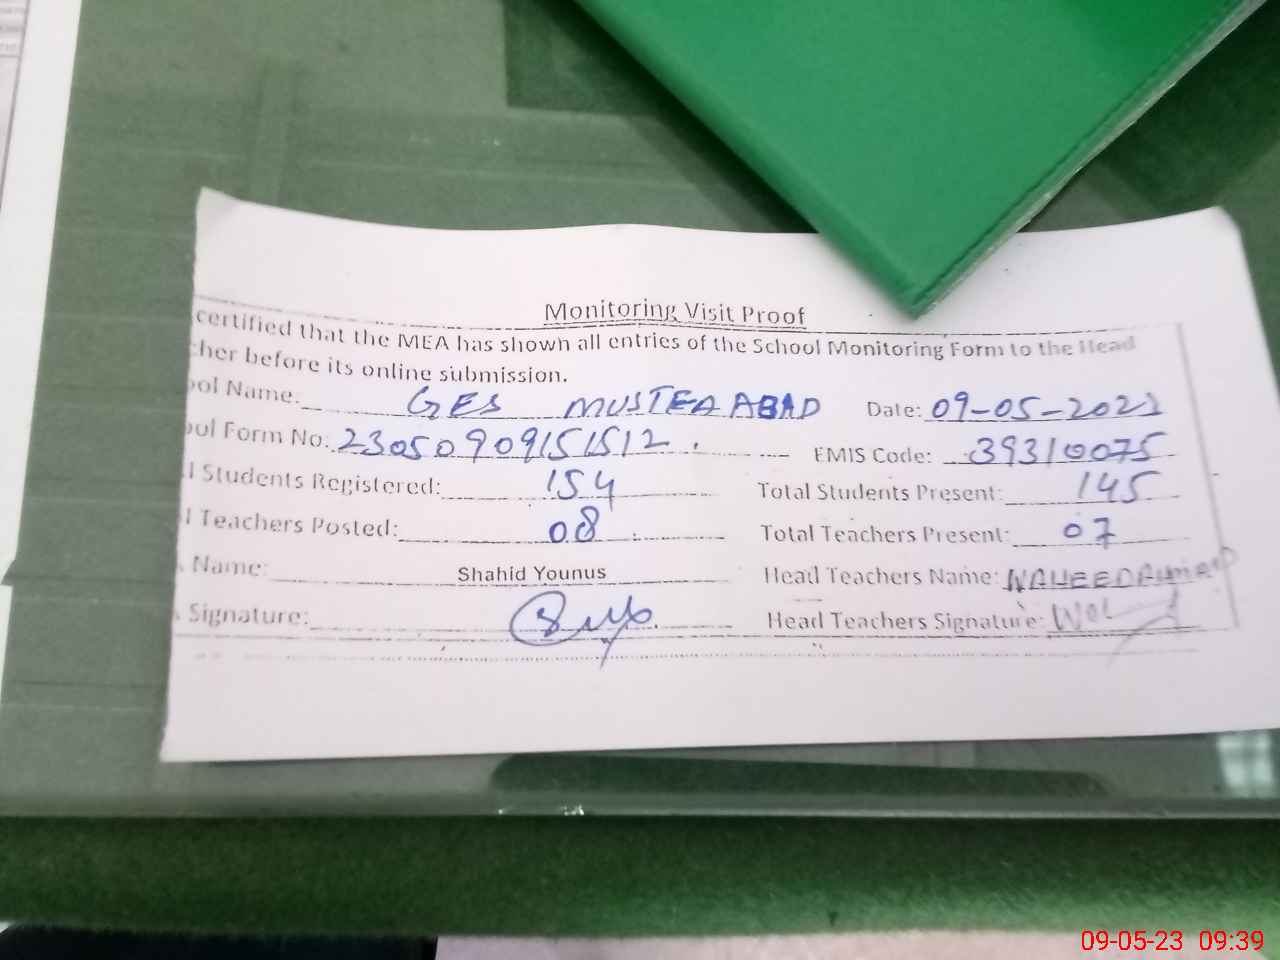 Monitoring Visit Proof
certified that the MEA has shown all entries of the School Monitoring Form to the Head
cher before its online submission.
ool Name: GES MUSTFA ABAD Date: 09-05-2023
ool Form No: 23050909151512. EMIS Code: 39310075
l Students Registered: 154 Total Students Present: 145
l Teachers Posted: 08 Total Teachers Present: 07
Name: Shahid Younus Head Teachers Name: WAHEED AHMAD
Signature: Head Teachers Signature:
09-05-23 09:39